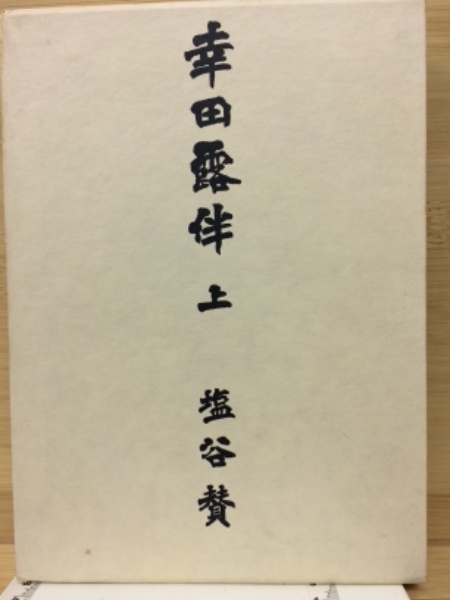 幸田露伴 上 塩谷賛